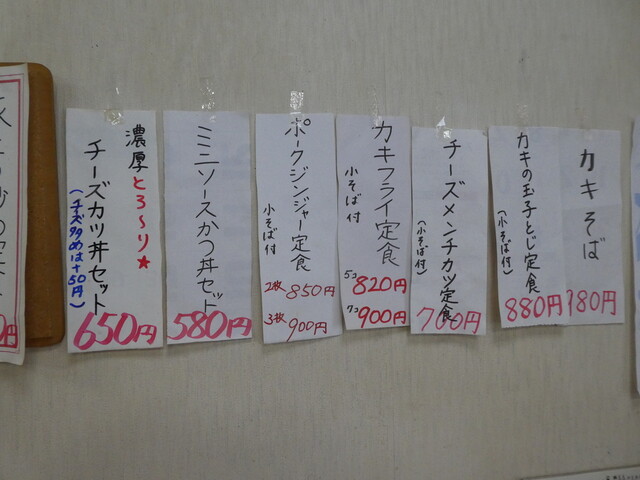 カキそば
780円
カキの玉子とじ定食
(小そば付)
880円
チーズメンチカツ定食
(小そば付)
700円
カキフライ定食
小そば付
5コ 820円
7コ 900円
ポークジンジャー定食
小そば付
2枚 850円
3枚 900円
ミニソースかつ丼セット
580円
濃厚とろ〜り★
チーズカツ丼セット
(チーズ多めは+50円)
650円